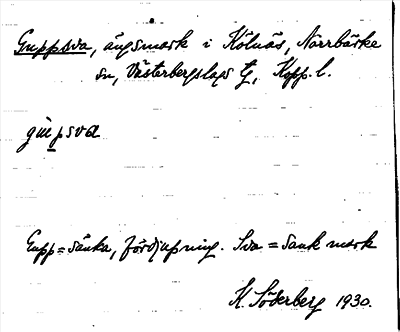 Guppsva, ängsmark i Kölnäs, Norrbärke
sn, Västerbergslags tg, Kopp. l.
gu̇psvα
Gupp = sänka, fördjupning. Sva = sank mark
K. Söderberg 1930.